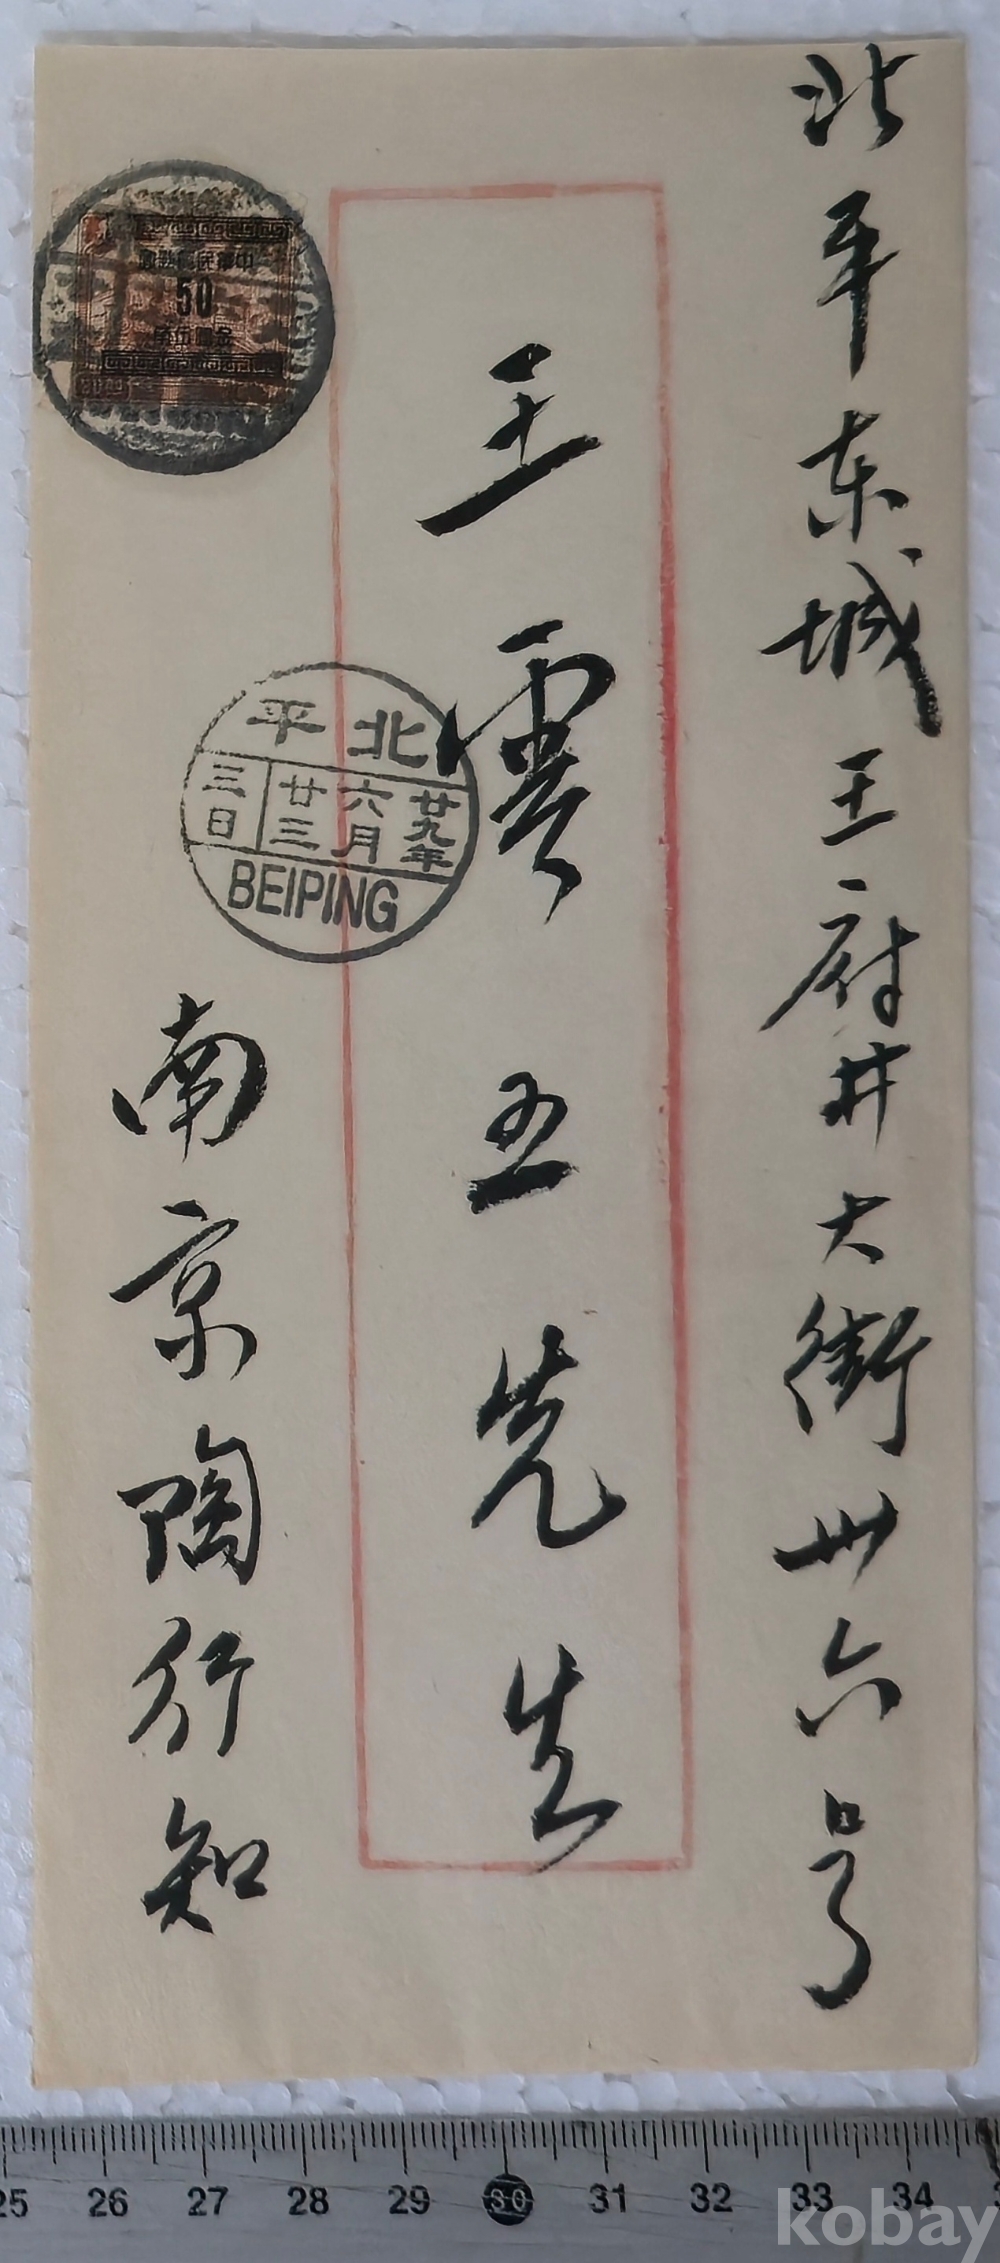 北平东城王府井大街卅六号
王雲五先生
南京陶行知
中華民國郵政
50
北平
廿九年
六月
廿三
三日
BEIPING
25 26 27 28 29 30 31 32 33 34
kobay